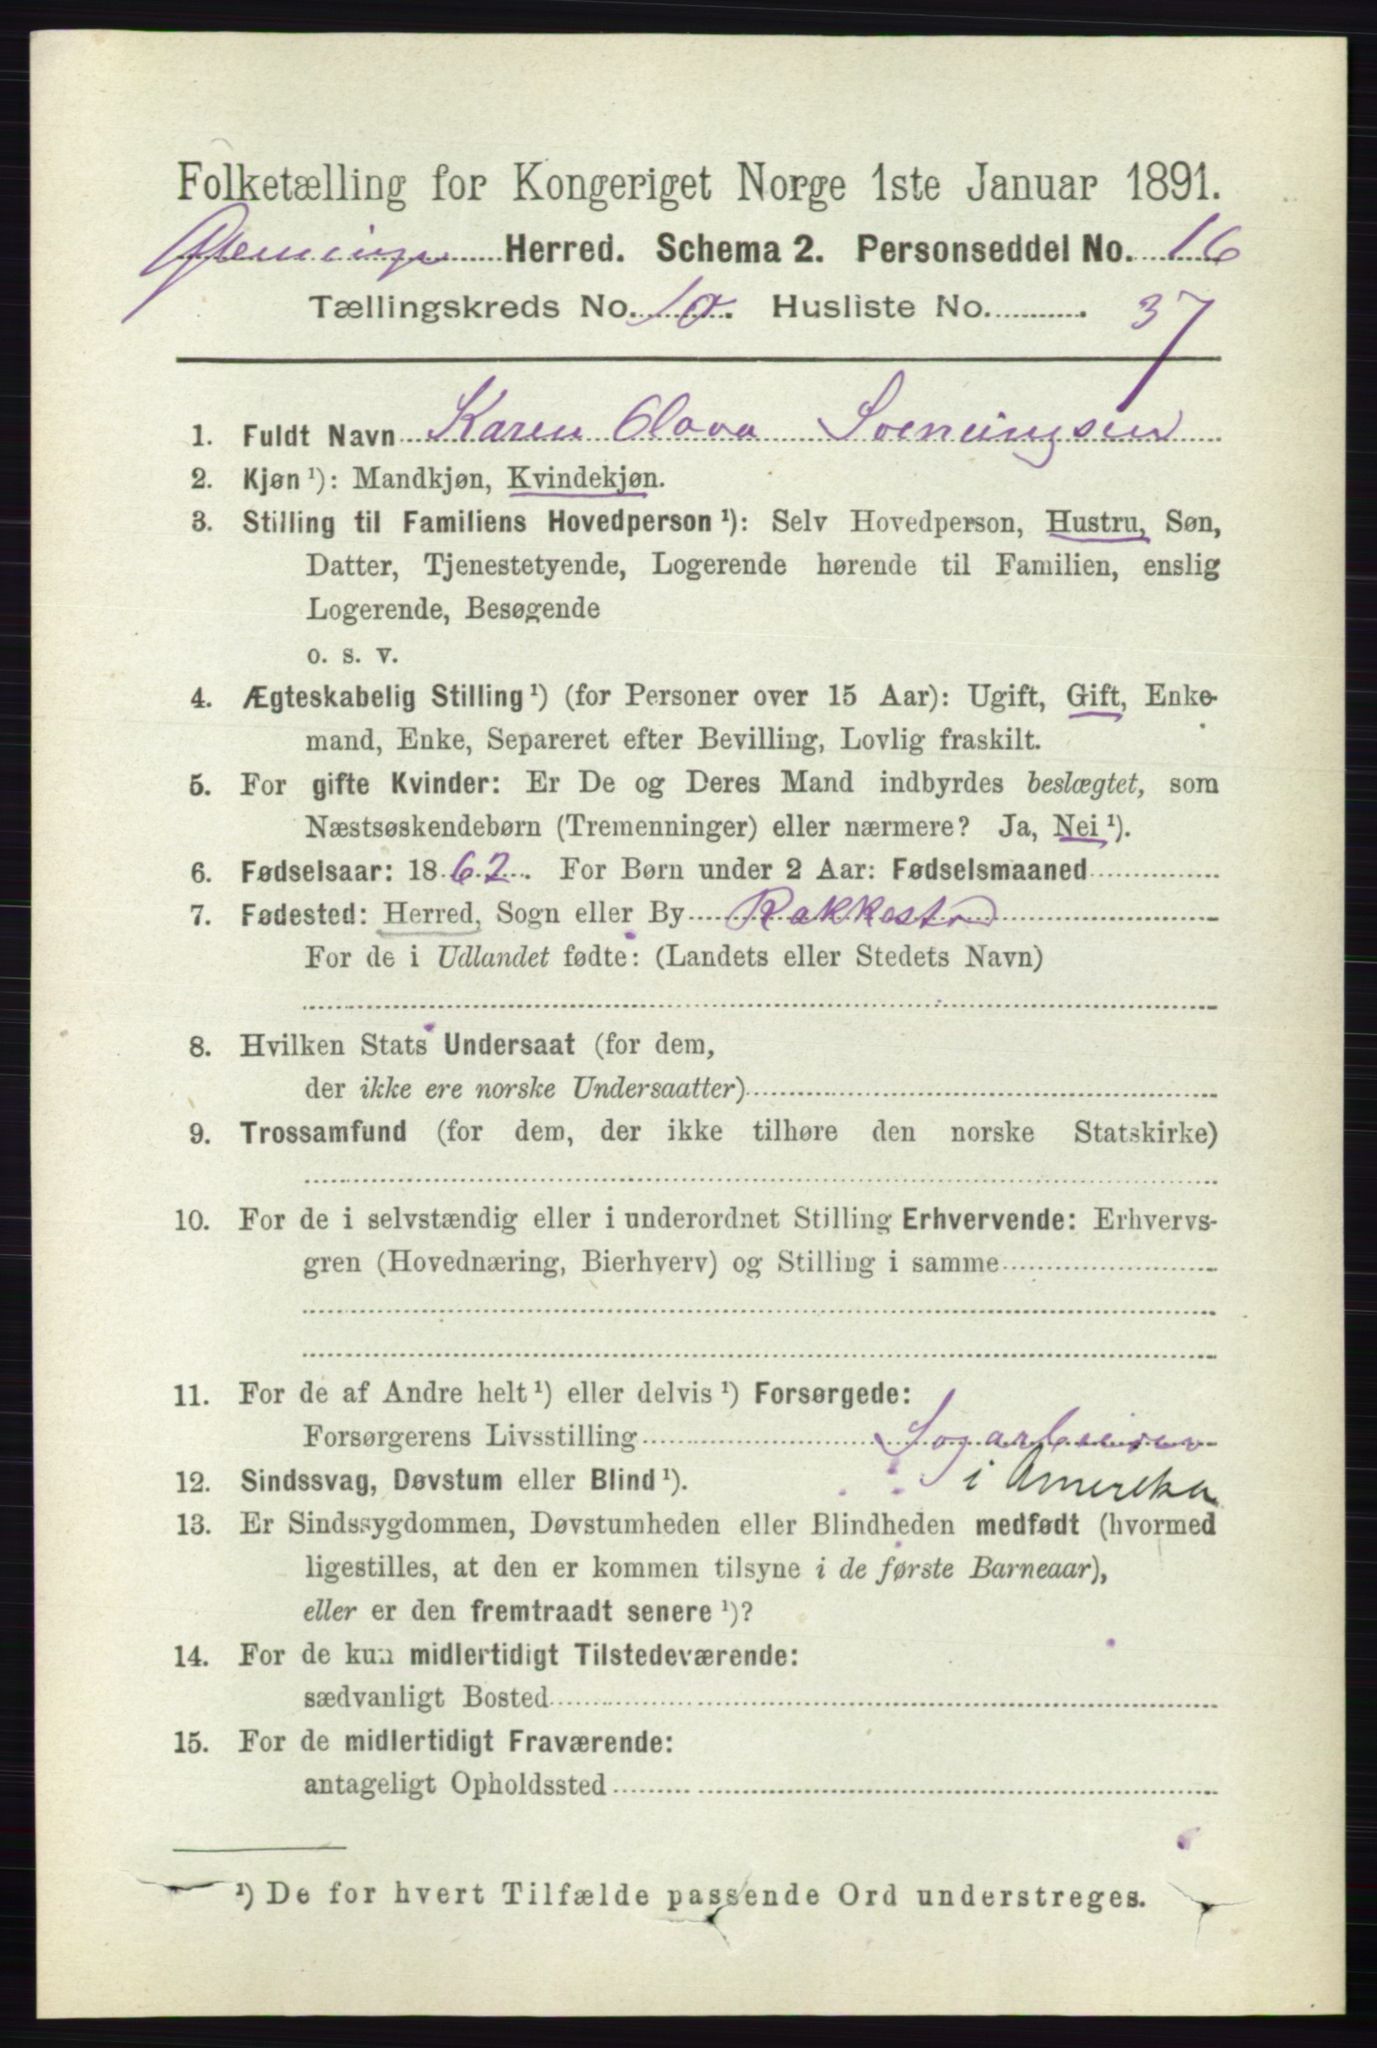 Folketælling for Kongeriget Norge 1ste Januar 1891.
Glemminge Herred. Schema 2. Personseddel No. 16
Tællingskreds No. 10. Husliste No. 37
1. Fuldt Navn Karen Olava Svenningsen
2. Kjøn ¹): Mandkjøn, Kvindekjøn.
3. Stilling til Familiens Hovedperson ¹): Selv Hovedperson, Hustru, Søn,
Datter, Tjenestetyende, Logerende hørende til Familien, enslig
Logerende, Besøgende
o. s. v.
4. Ægteskabelig Stilling ¹) (for Personer over 15 Aar): Ugift, Gift, Enke-
mand, Enke, Separeret efter Bevilling, Lovlig fraskilt.
5. For gifte Kvinder: Er De og Deres Mand indbyrdes beslægtet, som
Næstsøskendebørn (Tremenninger) eller nærmere? Ja, Nei ¹).
6. Fødselsaar: 1862. For Børn under 2 Aar: Fødselsmaaned
7. Fødested: Herred, Sogn eller By Rakkestad
For de i Udlandet fødte: (Landets eller Stedets Navn)
8. Hvilken Stats Undersaat (for dem,
der ikke ere norske Undersaatter)
9. Trossamfund (for dem, der ikke tilhøre den norske Statskirke)
10. For de i selvstændig eller i underordnet Stilling Erhvervende: Erhvervs-
gren (Hovednæring, Bierhverv) og Stilling i samme
11. For de af Andre helt ¹) eller delvis ¹) Forsørgede:
Forsørgerens Livsstilling Sagarbeider
i Amerika
12. Sindssvag, Døvstum eller Blind ¹).
13. Er Sindssygdommen, Døvstumheden eller Blindheden medfødt (hvormed
ligestilles, at den er kommen tilsyne i de første Barneaar),
eller er den fremtraadt senere ¹)?
14. For de kun midlertidigt Tilstedeværende:
sædvanligt Bosted
15. For de midlertidigt Fraværende:
antageligt Opholdssted
¹) De for hvert Tilfælde passende Ord understreges.